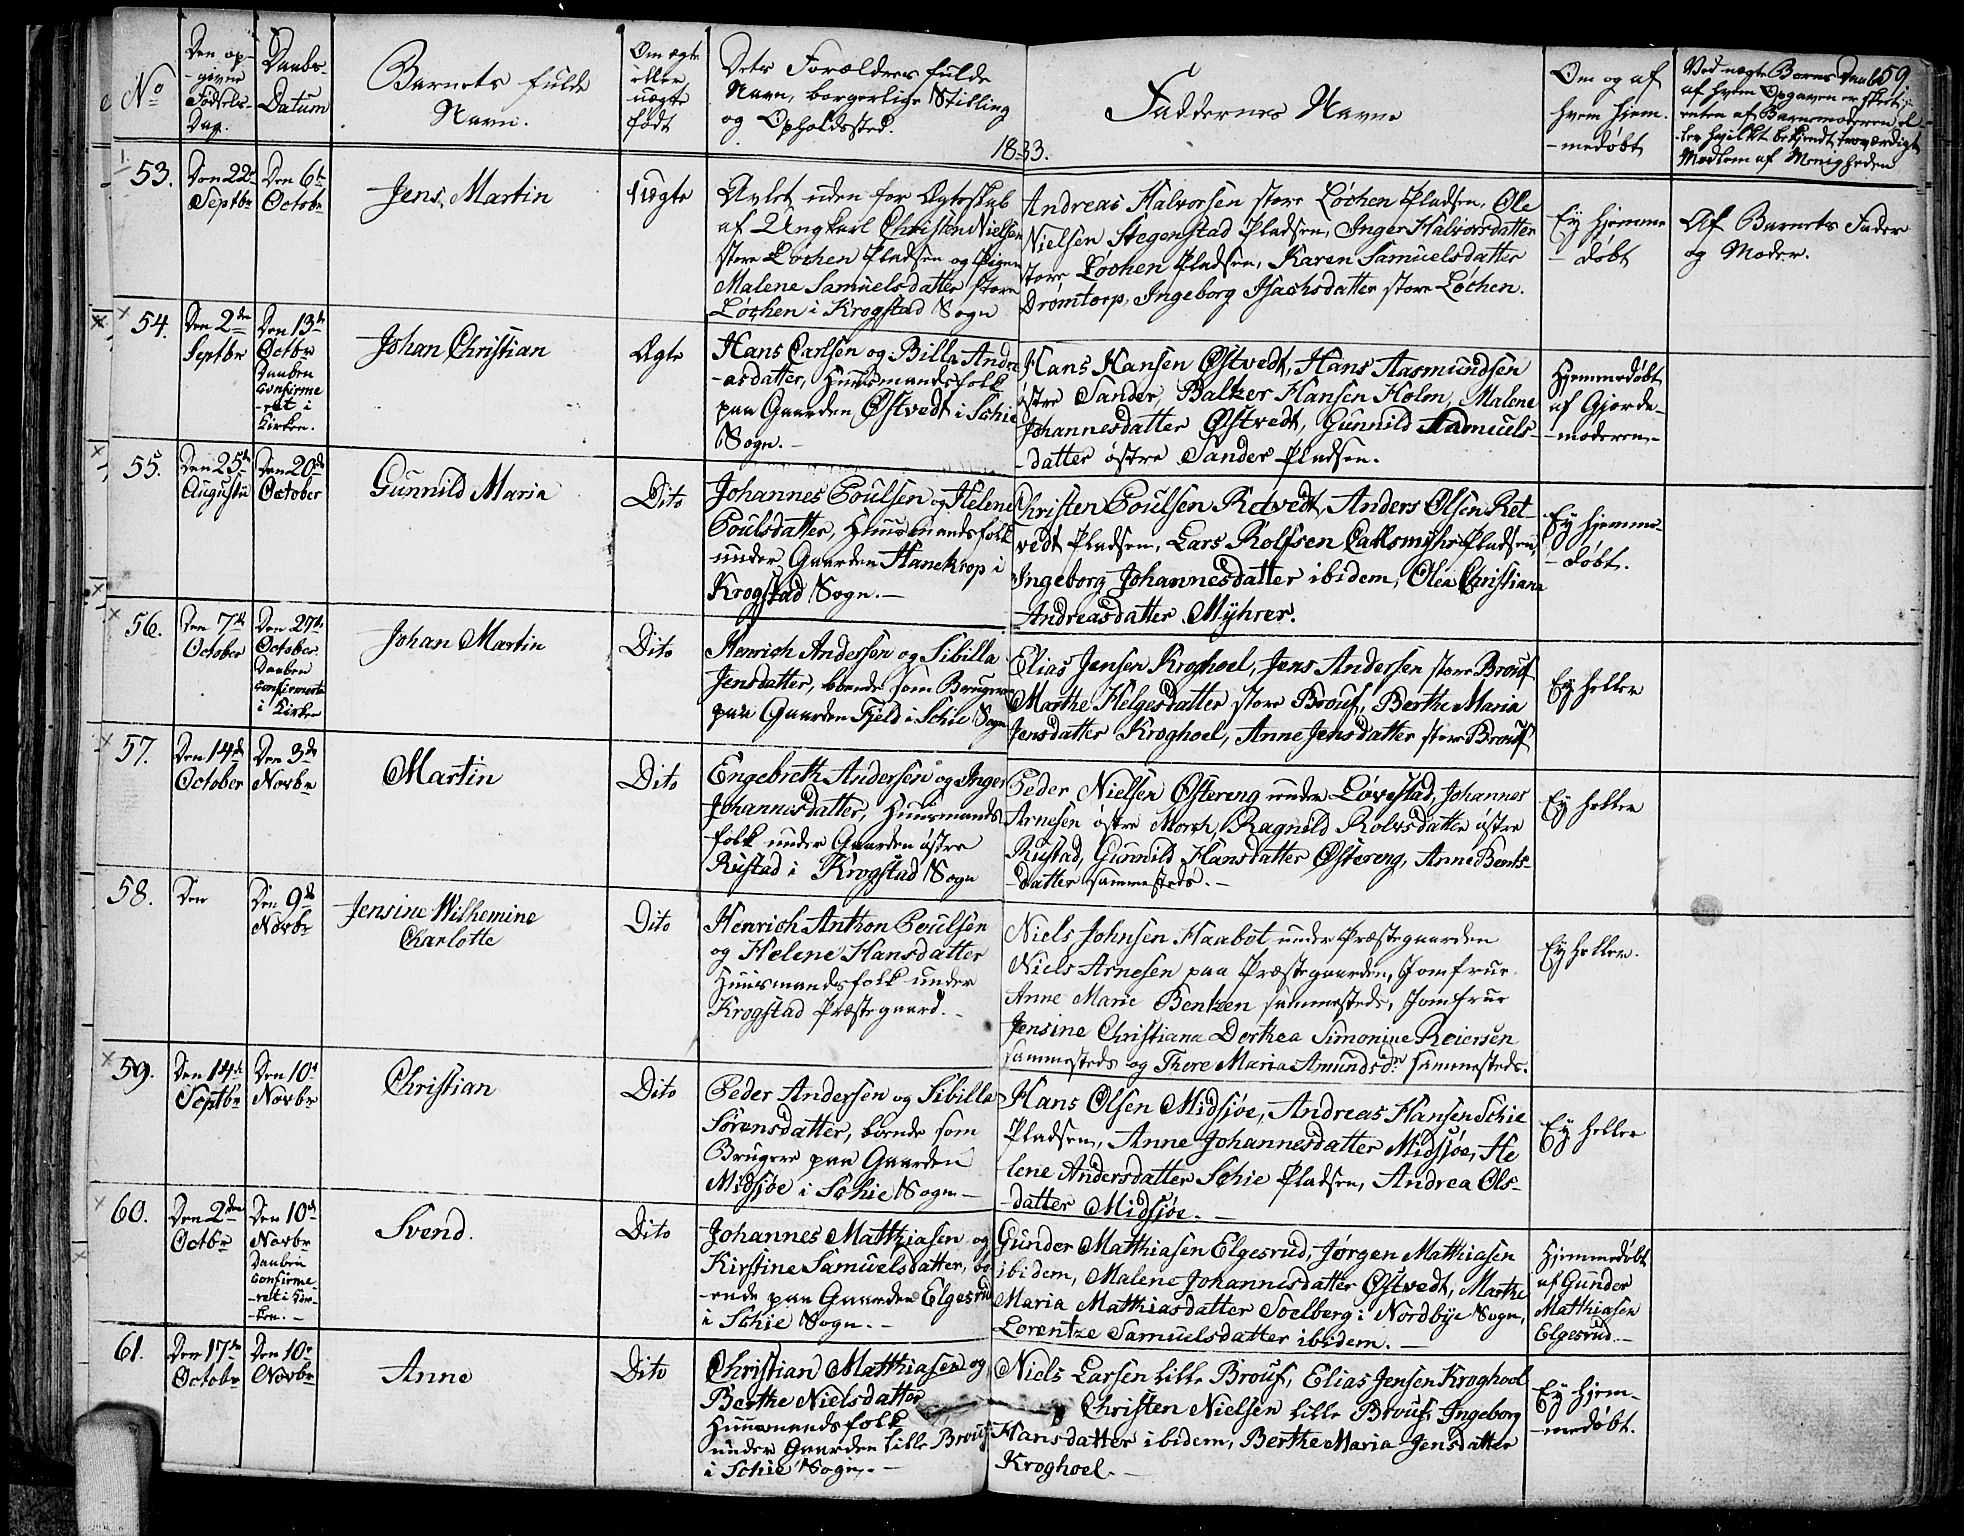 59.
No
Den op-
-givne
Fødsels-
Dag.
Daabs-
Datum
Barnets fulde
Navn.
Om ægte
eller
uægte
født
Dets Forældres fulde
Navn, borgerlige Stilling
og Opholdssted.
Faddernes Navne
Om og af
hvem hjem-
-medøbt
Ved uægte Børns Daab
af hvem Opgaven er skeet,
enten af Barnemoderen el-
ler hvilket bekjendt, troværdigt
Medlem af Menigheden
1833.
53.
Den 22de
Septbr
Den 6te
Octobr
Jens Martin
Uægte
Avlet uden for Ægteskab
af Ungkarl Christen Nielsen
store Løchen Pladsen og Pigen
Malene Samuelsdatter store
Løchen i Krogstad Sogn
Andreas Halvorsen store Løchen Pladsen, Ole
Nielsen Stegenstad Pladsen, Inger Halvorsdatter
store Løchen Pladsen, Karen Samuelsdatter
Drømtorp, Ingeborg Isachsdatter store Løchen.
Ey hjemme
-døbt
Af Barnets Fader
og Moder.
54.
Den 2den
Septbr
Den 13de
Octbr
Daaben
confirme
-ret i
Kirken.
Johan Christian
Ægte
Hans Carlsen og Billa Andre
-asdatter, Huusmandsfolk
paa Gaarden Østvedt i Schie
Sogn.-
Hans Hansen Østvedt, Hans Aasmundsen
østre Sander, Balzer Hansen Holm, Malene
Johannesdatter Østvedt, Gunnild Samuels-
-datter østre Sander Pladsen.
Hjemmedøbt
af Gjorde-
-moderen-
55.
Den 25de
Augustii
Den 20de
October
Gunnild Maria
Dito
Johannes Poulsen og Helene
Poulsdatter, Huusmandsfolk
under Gaarden Hanekrop i
Krogstad Sogn.-
Christen Poulsen Retvedt, Anders Olsen Ret-
vedt Pladsen, Lars Rolfsen Pladsen,
Ingeborg Johannesdatter ibidem, Olea Christiana
Andreasdatter Myhrer.
Ey hjemme-
-døbt.
56.
Den 7de
October
Den 27de
October
Daaben
confirmeret
i Kirken
Johan Martin
Dito
Henrich Andersen og Sibilla
Jensdatter, boende som Brugere
paa Gaarden Fjeld i Schie Sogn
Elias Jensen Kroghoel, Jens Andersen store Brouf
Marthe Helgesdatter store Brouf, Berthe Maria
Jensdatter Kroghoel, Anne Jensdatter store Brouf
Ey heller
57.
Den 14de
October
Den 3de
Novbr
Martin
Dito
Engebreth Andersen og Inger
Johannesdatter, Huusmands-
folk under Gaarden østre
Rustad i Krogstad Sogn
Peder Nielsen Østereng under Løvestad, Johannes
Arnesen østre Morch, Ragnild Rolvsdatter østre
Rustad, Gunnild Hansdatter Østereng, Anne Bents-
-datter sammesteds.-
Ey heller
58.
Den
Den 9de
Novbr
Jensine Wilhemine
Charlotte
Dito
Henrich Anthon Poulsen
og Helene Hansdatter
Huusmandsfolk under
Krogstad Præstegaard.-
Niels Johnsen Haabet under Præstegaarden
Niels Arnesen paa Præstegaarden, Jomfrue
Anne Marie Bentzen sammesteds, Jomfrue
Jensine Christiana Dorthea Simonine Reiersen
sammesteds og There Maria Amundsdr sammesteds.
Ey heller.
59.
Den 14de
Septbr
Den 10de
Novbr
Christian
Dito
Peder Andersen og Sibilla
Sørensdatter, boende som
Brugere paa Gaarden
Midsjøe i Schie Sogn-
Hans Olsen Midsjøe, Andreas Hansen Schie
Pladsen, Anne Johannesdatter Midsjøe, He
lene Andersdatter Schie Pladsen, Andrea Ols-
-datter Midsjøe.-
Ey heller
60.
Den 2den
Octbr
Den 10de
Novbr
Daaben
confirme-
-ret i Kir-
-ken.-
Svend.
Dito
Johannes Matthiasen og
Kirstine Samuelsdatter, bo-
-ende paa Gaarden Elgesrud
i Schie Sogn.-
Gunder Matthiasen Elgesrud, Jørgen Matthiasen
ibidem, Malene Johannesdatter Østvedt, Marthe
Maria Mathiasdatter Soelberg i Nordbye Sogn,
Lorentze Samuelsdatter ibidem.-
Hjemmedøbt
af Gunder
Matthiasen
Elgesrud.-
61.
Den 17de
Octobr
Den 10de
Novbr
Anne
Dito
Christian Matthiasen og
Berthe Nielsdatter
Huusmandsfolk
under Gaarden lille Brouf
i Schie Sogn.-
Niels Larsen lille Brouf, Elias Jensen Kroghoel
Christen Nielsen lille Brouf, Ingeborg
Hansdatter ibidem, Berthe Maria Jensdatter
Kroghoel.-
Ey hjem-
-medøbt.